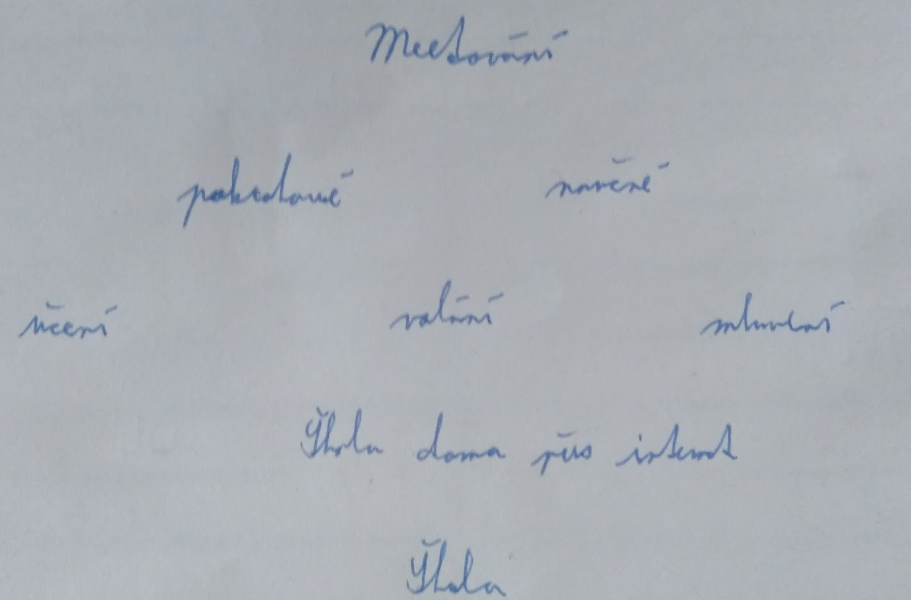 Meetování
pokrokové naučné
učení volání mluvení
Škola doma přes internet
Škola